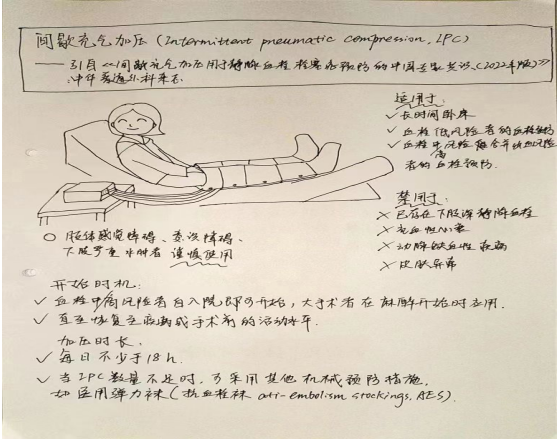 间歇充气加压(Intermittent pneumatic compression, IPC)
——引自《间歇充气加压用于静脉血栓栓塞症预防的中国专家共识(2022年版)》
中华普通外科杂志
适用于:
✓ 长时间卧床
✓ 血栓低风险者的血栓预防
✓ 血栓中高风险合并出血风险
者的血栓预防.
禁用于:
× 已存在下肢深静脉血栓
× 充血性心衰
× 动脉缺血性疾病
× 皮肤异常
○ 肢体感觉障碍、意识障碍、
下肢严重水肿者 谨慎使用
开始时机:
✓ 血栓中高风险者自入院即可开始,大手术者在麻醉开始时应用.
✓ 直至恢复至疾病或手术前的活动水平.
加压时长.
✓ 每日不少于18h.
✓ 当IPC数量不足时,可采用其他机械预防措施.
如医用弹力袜(抗血栓袜 ati-embolism stockings, AES).